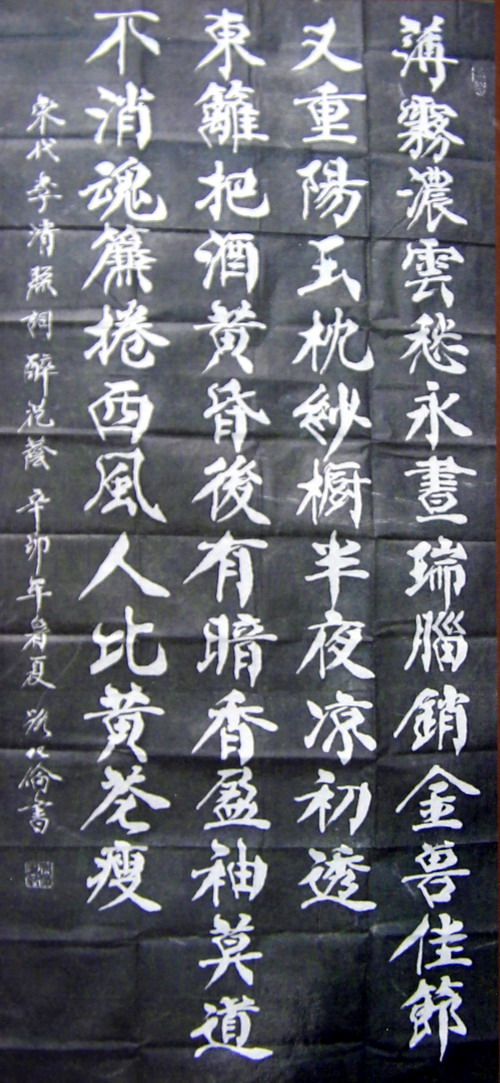 薄霧濃雲愁永晝瑞腦銷金兽佳節
又重陽玉枕紗橱半夜凉初透
東籬把酒黄昏後有暗香盈袖莫道
不消魂簾捲西風人比黄花瘦
宋代李清照詞醉花蔭 辛卯年夏書